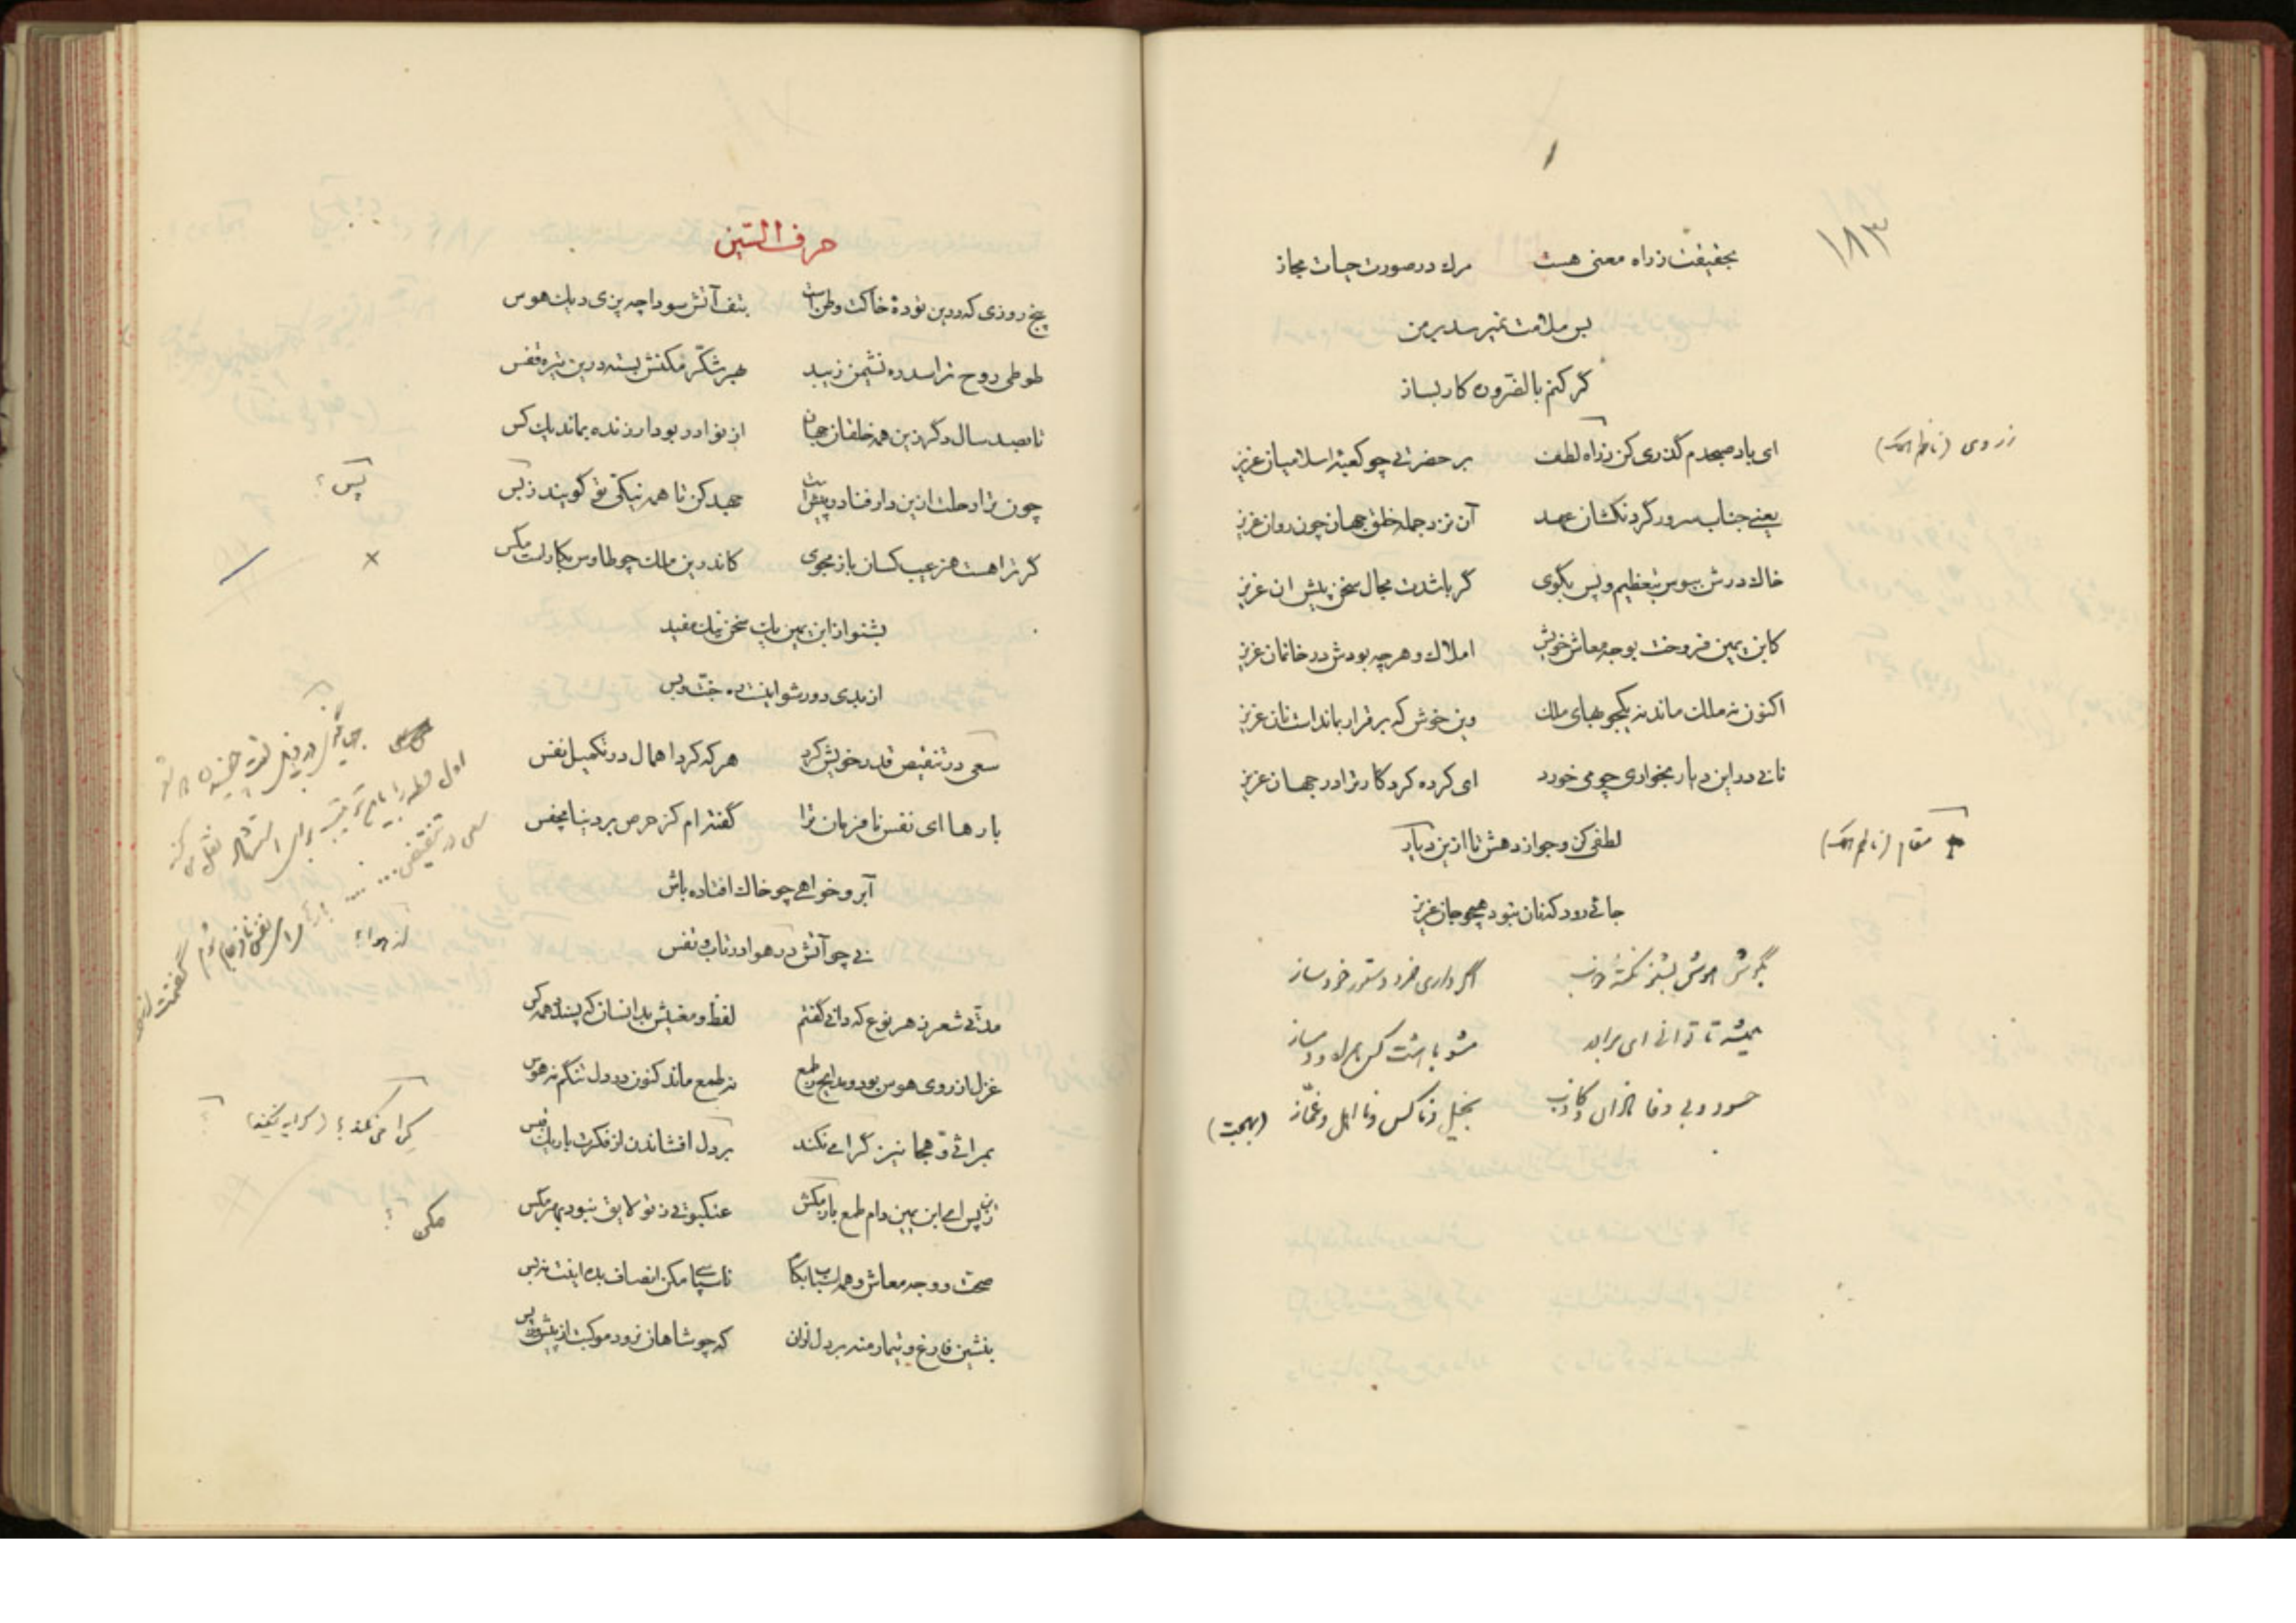 ۱۸۳
بحقیقت ز راه معنی هست مرك در صورت حیات مجاز
بس ملامت نمیرسد بر من
گر کنم بالضروره کار بساز
ای باد صبحدم گذری کن ز راه لطف بر حضرتی چو کعبهٔ اسلامیان عزیز
ز روی
یعنی جناب سرور گردنکشان عهد آن نزد جمله خلق جهان چون روان عزیز
خاك درش ببوس بتعظیم و پس بگوی گر باشدت مجال سخن پیش ان عزیز
کابن یمین فروخت بوجه معاش خویش املاك و هر چه بودش در خانمان عزیز
اکنون نه ملك ماند نه یکجو بهای ملك وین خوش که بر قرار بماند است نان عزیز
نانی در این دیار بخواری چو می خورد ای کرده کردکار ترا در جهان عزیز
لطفی کن و جواز دهش تا ازین دیار
مقام
جائی رود که نان نبود همچو جان عزیز
بگوش هوش بشنو نکتهٔ اگر داری خرد دستور خود ساز
همیشه تا توانی ای برادر مشو با شت کس همراه و دمساز
حسود و بی وفا نادان و کاذب بخیل و ناکس و نا اهل و غماز (بهجت)
حرف السین
پنج روزی که درین تودهٔ خاکت وطن است بتف آتش سودا چه پزی دیك هوس
طوطی روح ترا سدره نشیمن زیبد بهر شکّر مکنش بسته درین تیره قفس
تا بصد سال دگر زین همه خلقان جهان از نوادر بود ار زنده بماند یك کس
چون ترا رحلت ازین دار فنا در پیش است جهد کن تا همه نیکی تو گویند ز پس
پس ؟
گر ترا هست هنر عیب کسان باز مجوی کاندرین ملك چو طاوس بکار است مگس
بشنو از ابن یمین یك سخن نیك مفید
از بدی دور شو اینت ره جنّت و بس
سعی در تنقیص قدر خویش کرد هر که کرد اهمال در تکمیل نفس
بارها ای نفس نا فرمان ترا گفته ام کز حرص بر دنیا مچفس
اول قطعه را باین ترتیب برای استشهاد نقل می کند
سعی در تنقیص ....
آبرو خواهی چو خاك افتاده باش
نی چو آتش در هوا در تاب و تفس
مدتی شعر ز هر نوع که دانی گفتم لفظ و معنیش بدانسان که پسندد همه کس
غزل از روی هوس بود و مدایح ز طمع نه طمع ماند کنون در دل تنگم نه هوس
بمراثی و هجا نیز گرا می نکند بر دل افشاندن از فکرت باریك نفس
کرا می نکند ؟
زین پس ای ابن یمین دام طمع باز مکش عنکبوتی ز تو لایق نبود بهر مگس
مکن ؟
صحّت و وجه معاش و همه اسباب بکام ناسپاسی مکن انصاف بده اینت نه بس
بنشین فارغ و تیمار منه بر دل از آن که چو شاهان نرود موکبت از پیش و ز پس